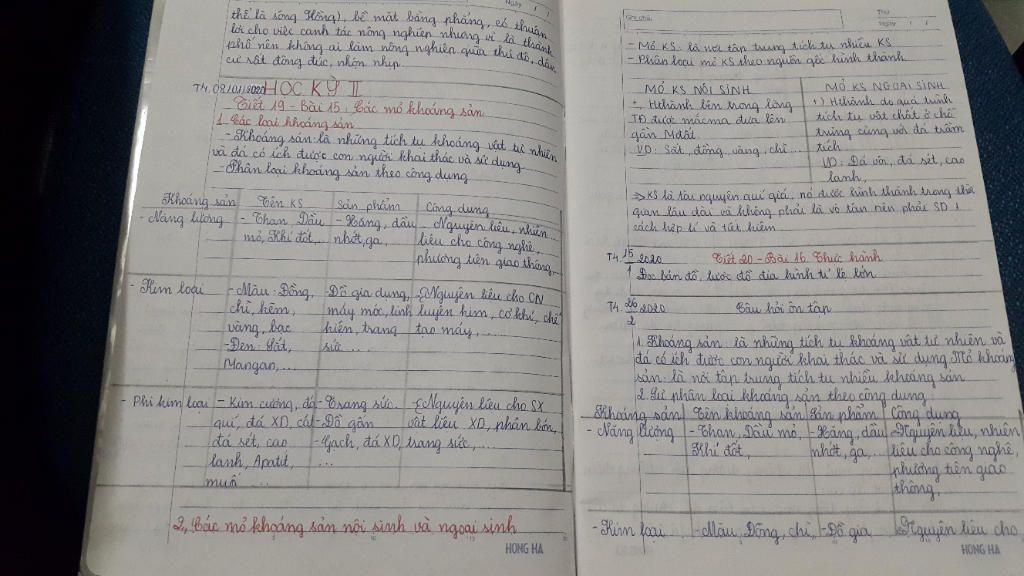 Ngày
thể là sông Hồng), bề mặt bằng phẳng, có thuận
lợi cho việc canh tác nông nghiệp nhưng vì là thành
phố nên không ai làm nông nghiệp giữa thủ đô, dân
cư rất đông đúc, nhộn nhịp.
T4, 08/01/2020 HỌC KỲ II
Tiết 19 - Bài 15: Các mỏ khoáng sản
1. Các loại khoáng sản
- Khoáng sản: là những tích tụ khoáng vật tự nhiên
và đá có ích được con người khai thác và sử dụng
- Phân loại khoáng sản theo công dụng
Khoáng sản Tên KS Sản phẩm Công dụng
- Năng lượng - Than, Dầu - Xăng, dầu - Nguyên liệu, nhiên
mỏ, Khí đốt, nhớt, ga, liệu cho công nghệ,
phương tiện giao thông,
- Kim loại - Màu: Đồng, Đồ gia dụng, - Nguyên liệu cho CN
chì, kẽm, máy móc, linh luyện kim, cơ khí, chế
vàng, bạc kiện, trang tạo máy, ...
- Đen: Sắt, sức ...
Mangan, ...
- Phi kim loại - Kim cương, đá - Trang sức. - Nguyên liệu cho SX
quí, đá XD, cát - Đồ gốm vật liệu XD, phân bón,
đá sét, cao - Gạch, đá XD, trang sức, ...
lanh, Apatit, ...
muố ...
2, Các mỏ khoáng sản nội sinh và ngoại sinh
HONG HA
Ghi chú:
Thứ
Ngày
- Mỏ KS: là nơi tập trung tích tụ nhiều KS
- Phân loại mỏ KS theo nguồn gốc hình thành
MỎ KS NỘI SINH MỎ KS NGOẠI SINH
+, Hthành lên trong lòng +) Hthành do quá trình
TĐ được mắcma đưa lên tích tụ vật chất ở chỗ
gần Mđất trũng cùng với đá trầm
VD: Sắt, đồng, vàng, chì ... tích
VD: Đá vôi, đá sét, cao
lanh,
=> KS là tài nguyên quí giá, nó được hình thành trong thời
gian lâu dài và không phải là vô tận nên phải SD 1
cách hợp lí và tiết kiệm
T4, 15/1 2020 Tiết 20 - Bài 16 Thực hành
Đọc bản đồ, lược đồ địa hình tỉ lệ lớn
T4, 26/2 2020 Câu hỏi ôn tập
1. Khoáng sản: là những tích tụ khoáng vật tự nhiên và
đá có ích được con người khai thác và sử dụng Mỏ khoáng
sản: là nơi tập trung tích tụ nhiều khoáng sản
2. Sự phân loại khoáng sản theo công dụng
Khoáng sản Tên khoáng sản Sản phẩm Công dụng
- Năng lượng - Than, Dầu mỏ, - Xăng, dầu - Nguyên liệu, nhiên
Khí đốt, nhớt, ga, ... liệu cho công nghệ,
phương tiện giao
thông,
- Kim loại - Màu, Đồng, chì, - Đồ gia - Nguyên liệu cho
HONG HA